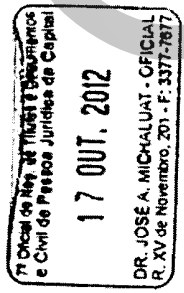 7º Oficial de Reg. de Títulos e Documentos
e Civil de Pessoa Jurídica da Capital
17 OUT. 2012
DR. JOSÉ A. MICHALUAT - OFICIAL
R. XV de Novembro, 201 - F: 3377-7677